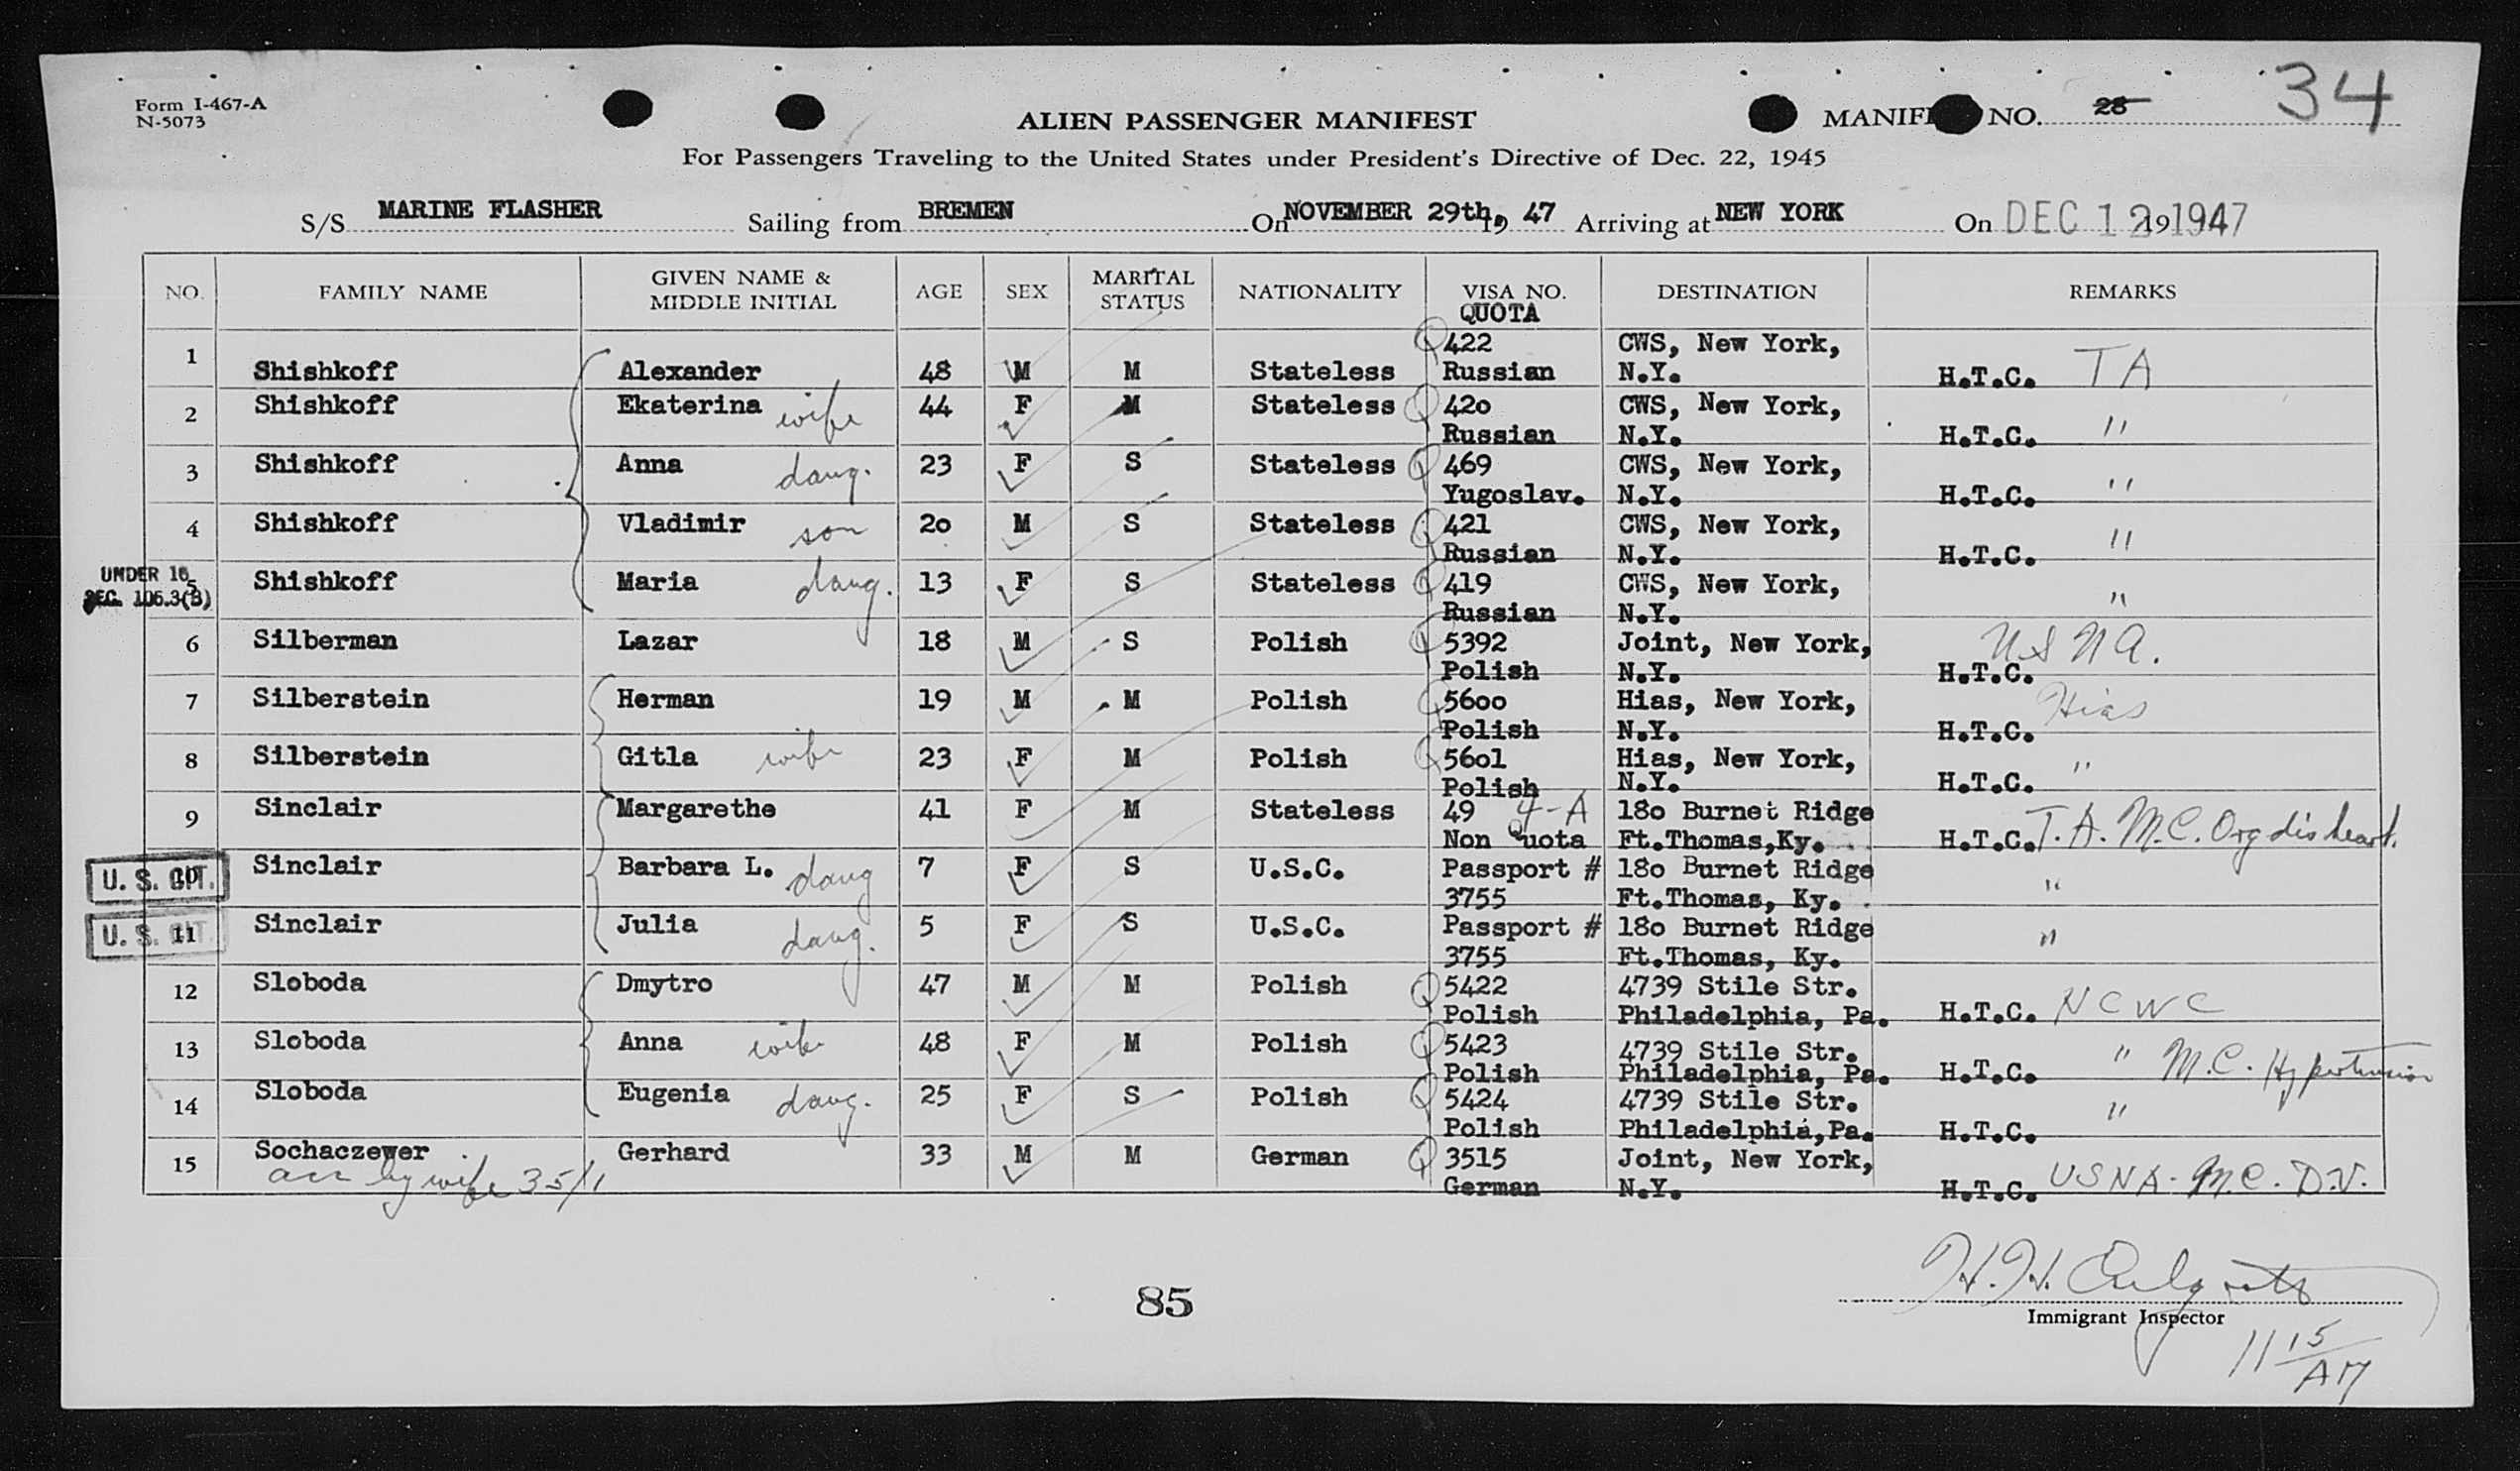 Form I-467-A
N-5073
ALIEN PASSENGER MANIFEST
MANIFEST NO. 28 34
For Passengers Traveling to the United States under President's Directive of Dec. 22, 1945
S/S MARINE FLASHER Sailing from BREMEN On NOVEMBER 29th, 1947 Arriving at NEW YORK On DEC 12 19 1947
NO. FAMILY NAME GIVEN NAME & MIDDLE INITIAL AGE SEX MARITAL STATUS NATIONALITY VISA NO. QUOTA DESTINATION REMARKS
1 Shishkoff Alexander 48 M M Stateless Q 422 Russian CWS, New York, N.Y. H.T.C. TA
2 Shishkoff Ekaterina wife 44 F M Stateless Q 420 Russian CWS, New York, N.Y. H.T.C. "
3 Shishkoff Anna daug. 23 F S Stateless Q 469 Yugoslav. CWS, New York, N.Y. H.T.C. "
4 Shishkoff Vladimir son 20 M S Stateless Q 421 Russian CWS, New York, N.Y. H.T.C. "
UNDER 16 SEC. 106.3(B) 5 Shishkoff Maria daug. 13 F S Stateless Q 419 Russian CWS, New York, N.Y. "
6 Silberman Lazar 18 M S Polish Q 5392 Polish Joint, New York, N.Y. H.T.C. USNA.
7 Silberstein Herman 19 M M Polish Q 5600 Polish Hias, New York, N.Y. H.T.C. Hias
8 Silberstein Gitla wife 23 F M Polish Q 5601 Polish Hias, New York, N.Y. H.T.C. "
9 Sinclair Margarethe 41 F M Stateless 49 4-A Non Quota 180 Burnet Ridge Ft.Thomas,Ky. H.T.C. T.A. M.C. Org dis heart.
U. S. CIT. 10 Sinclair Barbara L. daug 7 F S U.S.C. Passport # 3755 180 Burnet Ridge Ft.Thomas, Ky. "
U. S. CIT. 11 Sinclair Julia daug. 5 F S U.S.C. Passport # 3755 180 Burnet Ridge Ft.Thomas, Ky. "
12 Sloboda Dmytro 47 M M Polish Q 5422 Polish 4739 Stile Str. Philadelphia, Pa. H.T.C. NCWC
13 Sloboda Anna wife 48 F M Polish Q 5423 Polish 4739 Stile Str. Philadelphia, Pa. H.T.C. " M.C. Hypertension
14 Sloboda Eugenia daug. 25 F S Polish Q 5424 Polish 4739 Stile Str. Philadelphia,Pa. H.T.C. "
15 Sochaczewer Gerhard 33 M M German Q 3515 German Joint, New York, N.Y. H.T.C. USNA - M.C. D.V.
acc by wife 35/1
H.H.
Immigrant Inspector
85
11 15 AM